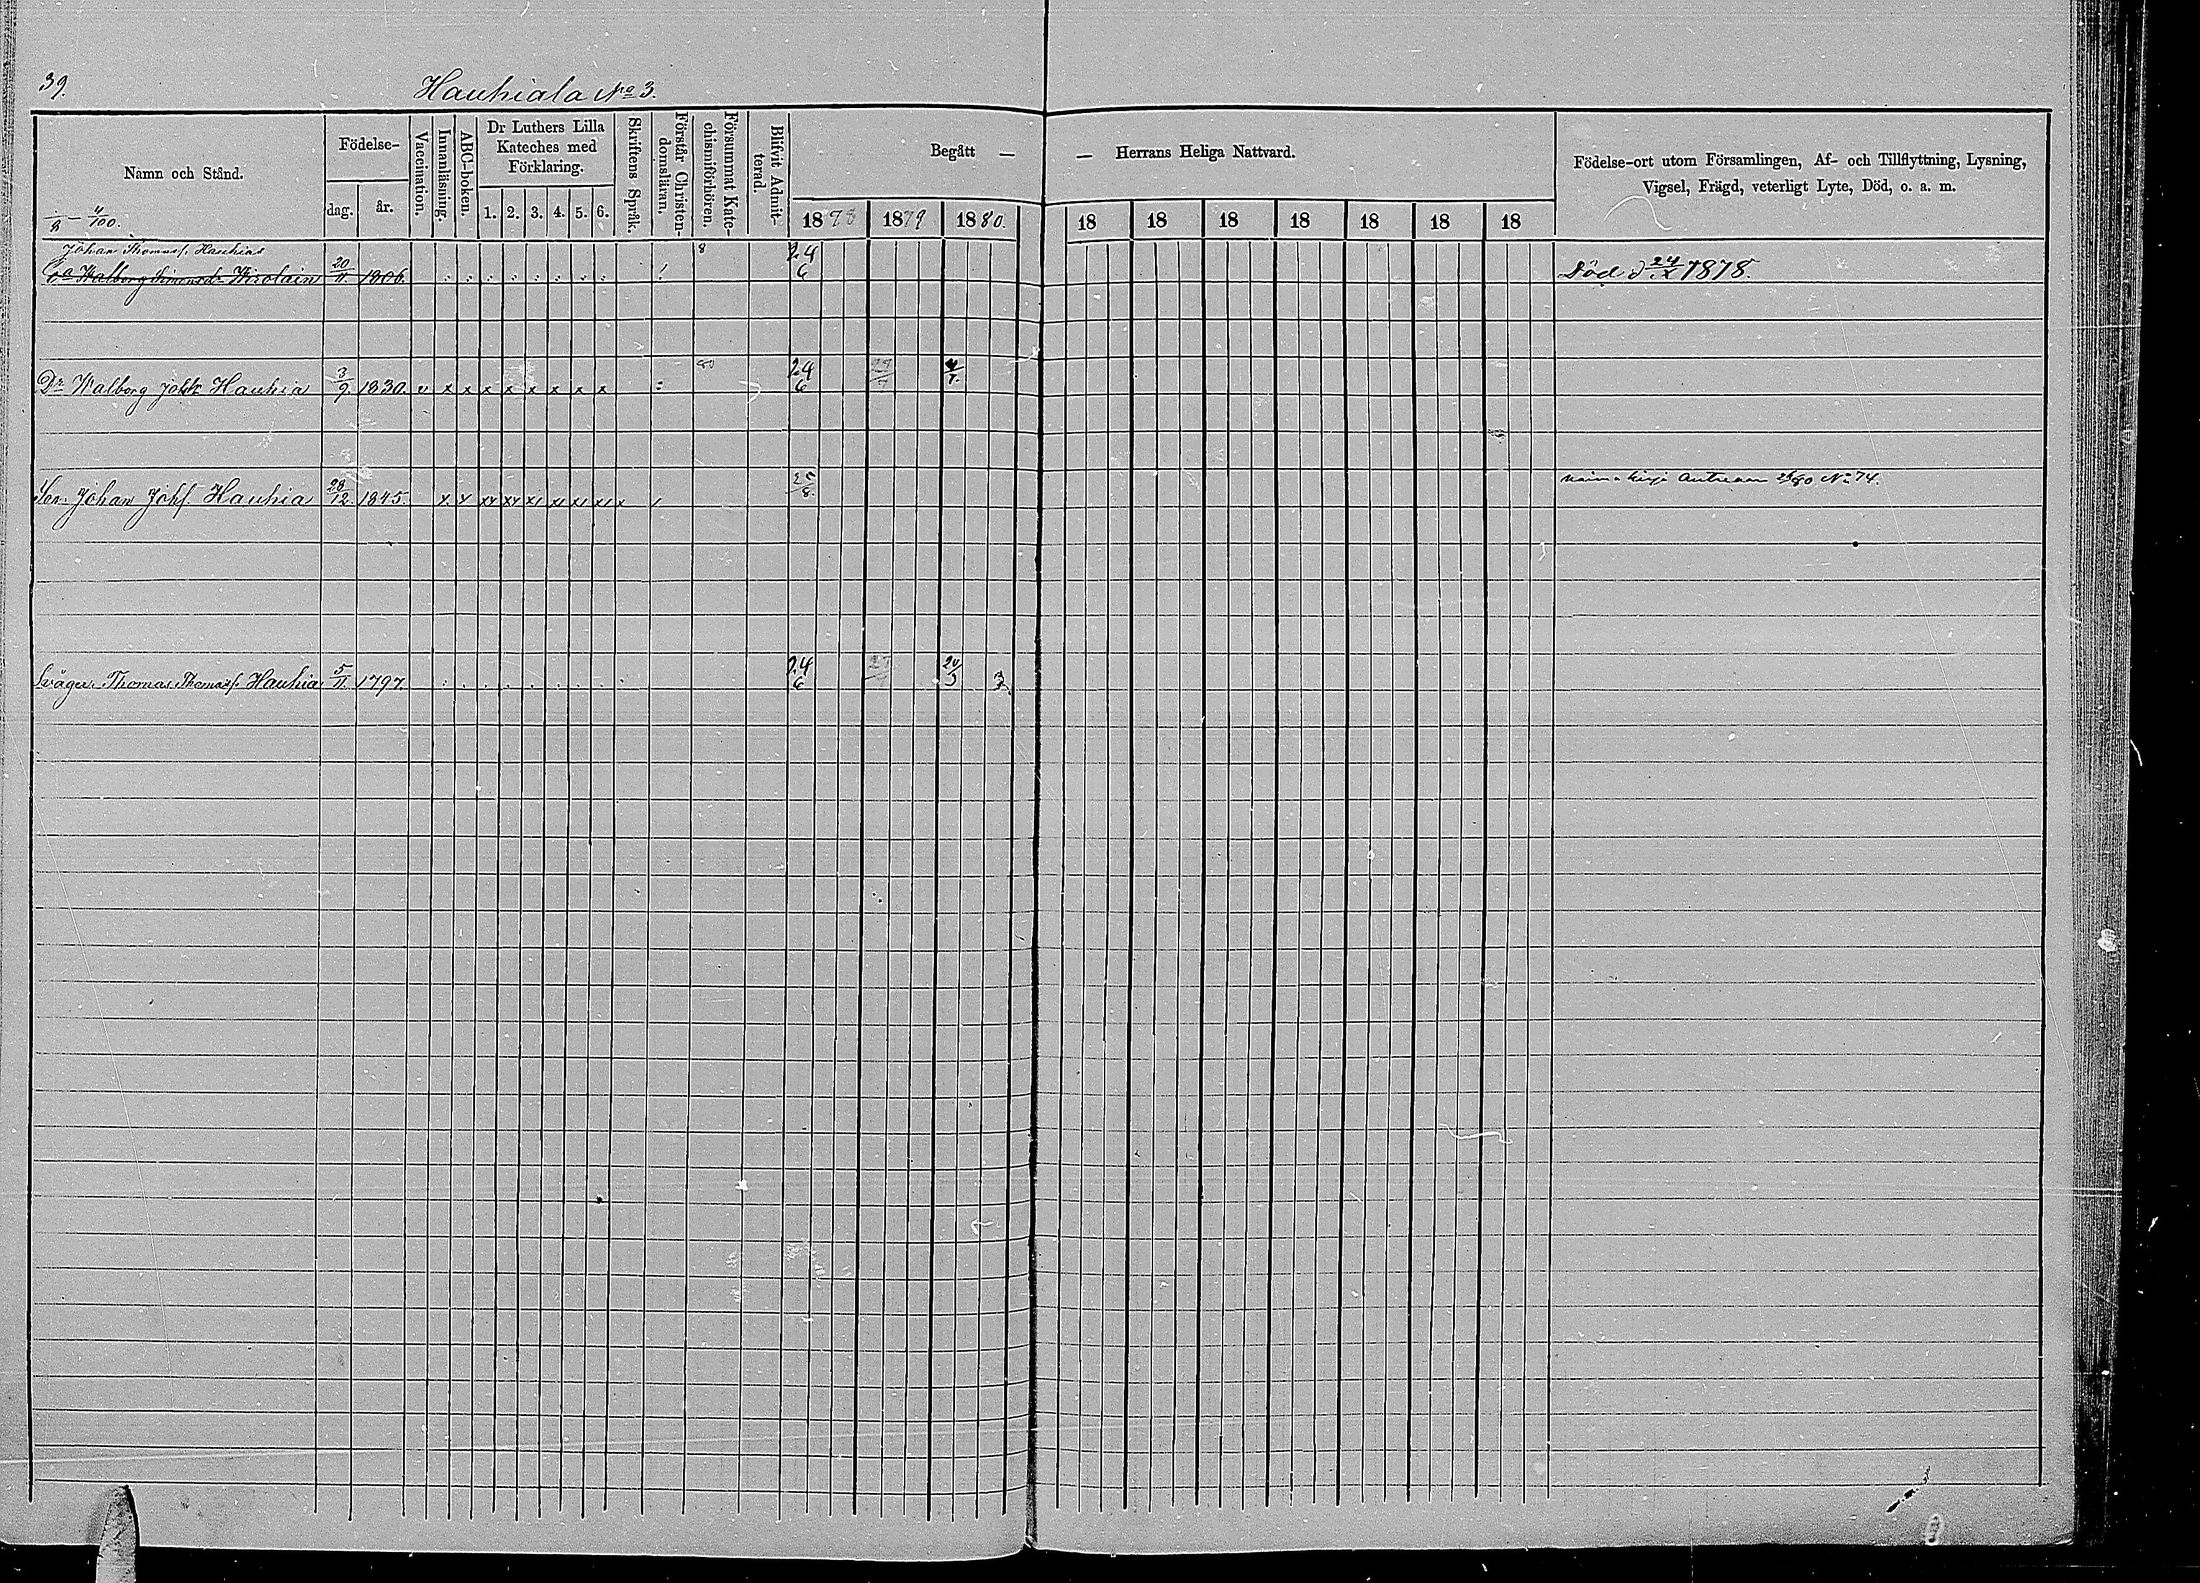 39.
Hauhiala No 3.
Namn och Stånd.
Födelse-
dag.
år.
Vaccination.
Innanläsning.
ABC-boken.
Dr Luthers Lilla
Kateches med
Förklaring.
1. 2. 3. 4. 5. 6.
Skriftens Språk.
Förstår Christen-
domsläran.
Försummat Kate-
chismiförhören.
Blifvit Admit-
terad.
Begått —
— Herrans Heliga Nattvard.
1878 1879 1880.
18 18 18 18 18 18 18
Födelse-ort utom Församlingen, Af- och Tillflyttning, Lysning,
Vigsel, Frägd, veterligt Lyte, Död, o. a. m.
Johan Thomass. Hauhias
Walborg Simonsdr 20/11. 1806. 8 24/6 Död d 24/X 1878.
Dr Walborg Johsdr Hauhia 3/9 1830. v x x x x x x x x 80 24/6 4/7.
Son Johan Johs. Hauhia 28/12. 1845. 25/8. 80 No 74.
Svåger Thomas Thomass. Hauhia 5/11. 1797. 24/6